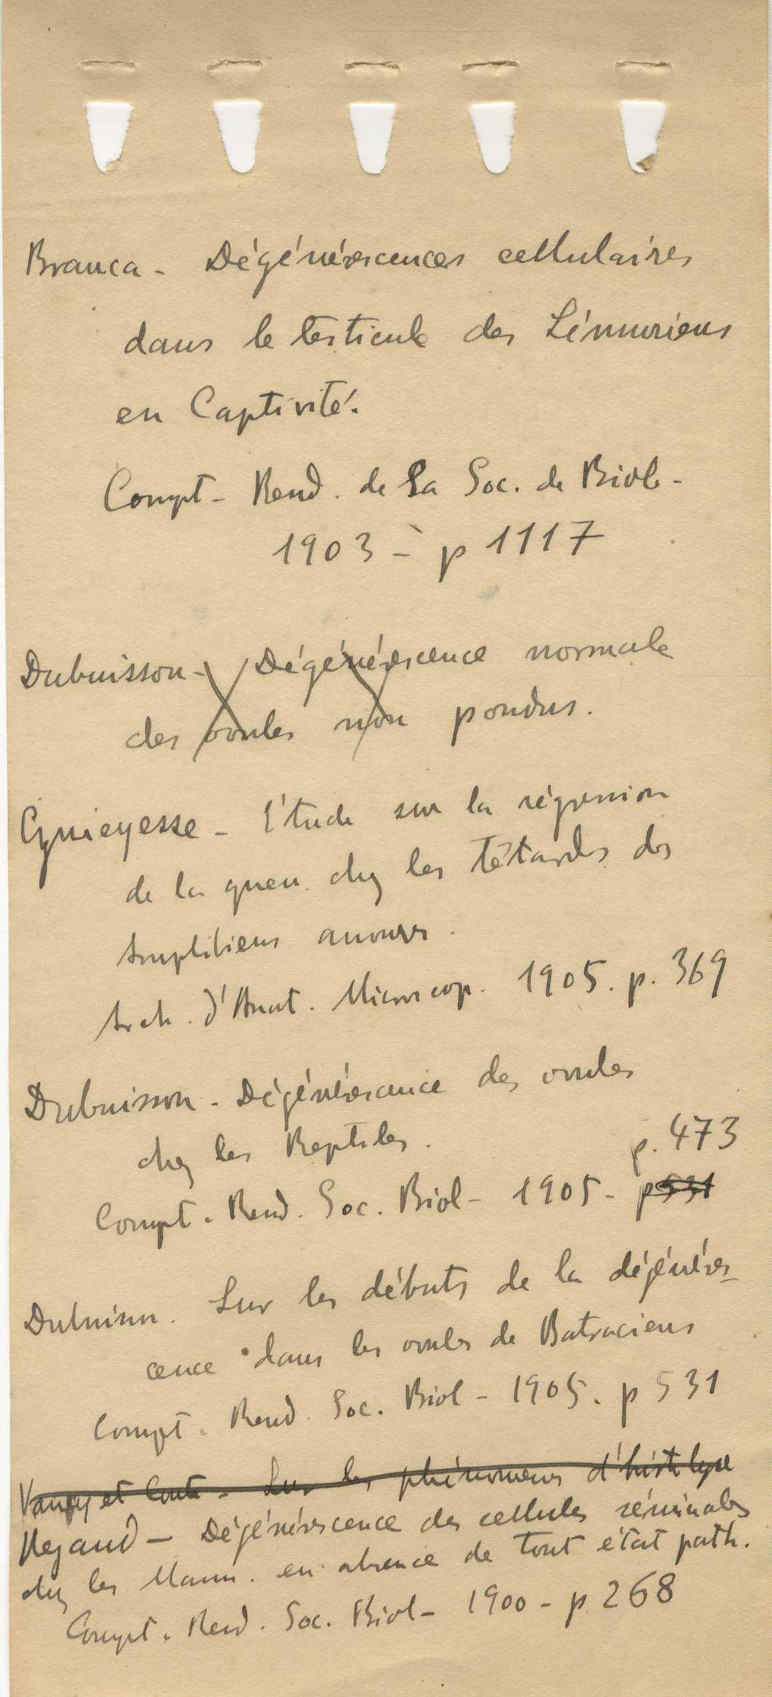 Branca - Dégénérescences cellulaires
dans le testicule des Lémuriens
en Captivité.
Compt- Rend. de La Soc. de Biol-
1903 - p 1117
Dubuisson - Dégénérescence normale
des ovules non pondus.
Guieyesse - Étude sur la régression
de la queue chez les têtards des
Amphibiens anoures.
Arch. d'Anat. Microscop. 1905. p. 369
Dubuisson - Dégénérescence des ovules
chez les Reptiles.
p. 473
Compt. Rend. Soc. Biol - 1905 - p 531
Dubuisson. Sur les débuts de la dégénéres-
cence dans les ovules de Batraciens
Compt. Rend. Soc. Biol - 1905. p 531
Vaney et Conte - Sur les phénomènes d'histolyse
Regaud - Dégénérescence des cellules séminales
chez les Mamm. en absence de tout état path.
Compt. Rend. Soc. Biol - 1900 - p 268